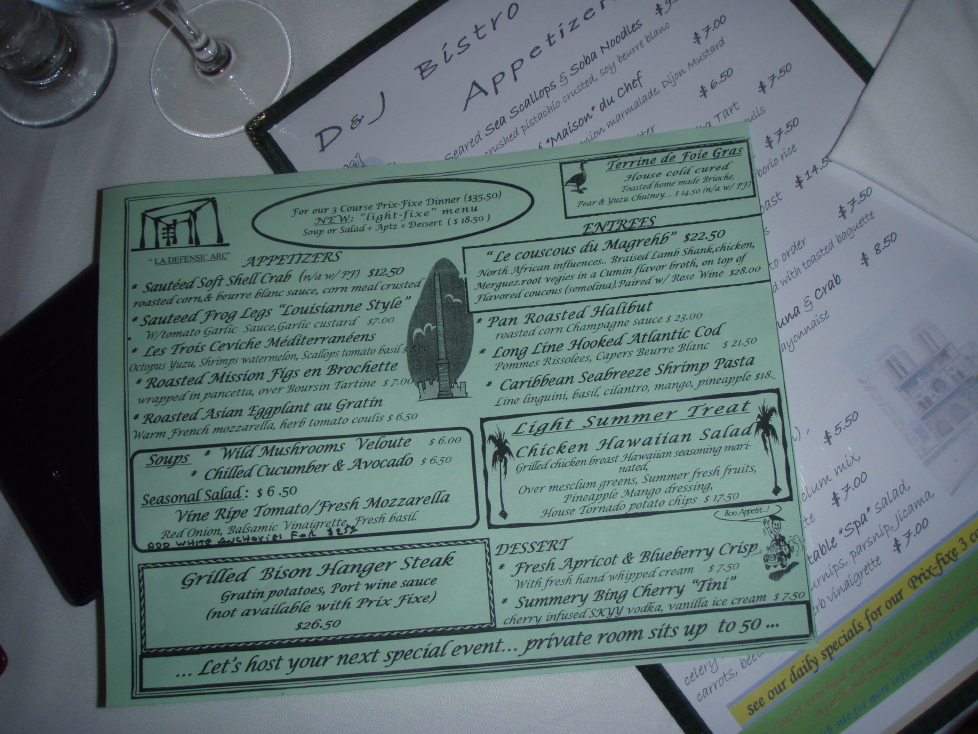 D&J Bistro
Appetizer
Seared Sea Scallops & Soba Noodles
crushed pistachio crusted, soy beurre blanc
$7.00
"Maison" du Chef
onion marmalade, Dijon Mustard
$6.50
Tart
$7.50
$7.50
$14.5
to order
$7.50
with toasted baguette
una & Crab
$8.50
ayonnaise
$5.50
$7.00
table "Spa" salad,
urnips, parsnip, jicama,
vinaigrette $7.00
celery
carrots,
see our daily specials for our Prix-fixe 3 co
For our 3 Course Prix-Fixe Dinner ($35.50)
NEW: "light-fixe" menu
Soup or Salad + Aptz + Dessert ( $ 18.50 )
Terrine de Foie Gras
House cold cured
Toasted home made Brioche,
Pear & Yuzu Chutney... $ 14.50 (n/a w/ PF)
"LA DEFENSE ARC"
APPETIZERS
* Sautéed Soft Shell Crab (n/a w/ PF) $12.50
roasted corn,& beurre blanc sauce, corn meal crusted
* Sauteed Frog Legs "Louisianne Style"
W/tomato Garlic Sauce,Garlic custard $7.00
* Les Trois Ceviche Méditerranéens
Octopus Yuzu, Shrimps watermelon, Scallops tomato basil
* Roasted Mission Figs en Brochette
wrapped in pancetta, over Boursin Tartine $ 7.00
* Roasted Asian Eggplant au Gratin
Warm French mozzarella, herb tomato coulis $ 6.50
Soups * Wild Mushrooms Veloute $ 6.00
* Chilled Cucumber & Avocado $ 6.50
Seasonal Salad : $ 6 .50
Vine Ripe Tomato/Fresh Mozzarella
Red Onion, Balsamic Vinaigrette, Fresh basil.
ADD WHITE ANCHOVIES FOR
Grilled Bison Hanger Steak
Gratin potatoes, Port wine sauce
(not available with Prix Fixe)
$26.50
ENTREES
"Le couscous du Magrehb" $22.50
North African influences.. Braised Lamb Shank,chicken,
Merguez.root vegies in a Cumin flavor broth, on top of
Flavored coucous (semolina).Paired w/ Rose Wine $28.00
* Pan Roasted Halibut
roasted corn Champagne sauce $ 23.00
* Long Line Hooked Atlantic Cod
Pommes Rissolées, Capers Beurre Blanc $ 21.50
* Caribbean Seabreeze Shrimp Pasta
Line linguini, basil, cilantro, mango, pineapple $18.
Light Summer Treat
Chicken Hawaiian Salad
Grilled chicken breast Hawaiian seasoning mari-
nated,
Over mesclum greens, Summer fresh fruits,
Pineapple Mango dressing,
House Tornado potato chips $ 17.50
Bon Appetit..!
DESSERT
* Fresh Apricot & Blueberry Crisp
With fresh hand whipped cream $ 7.50
* Summery Bing Cherry "Tini"
cherry infused SKYY vodka, vanilla ice cream $ 7.50
... Let's host your next special event... private room sits up to 50 ...